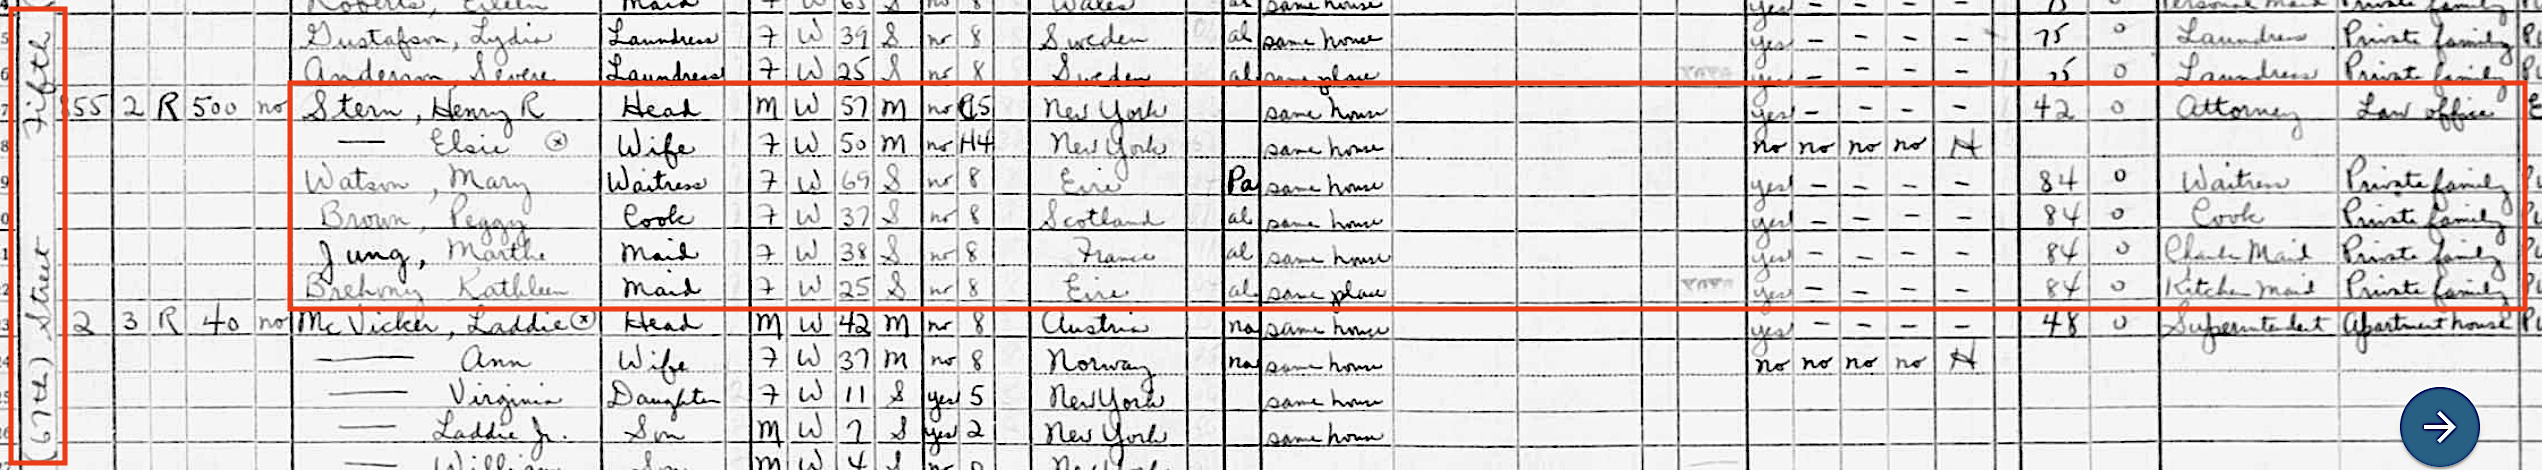 Fifth
(67th) Street
Roberts, Eileen Maid 7 W 63 S no 8 Wales al same house yes - - - - 75 0 Personal maid Private family
Gustafson, Lydia Laundress 7 W 39 S no 8 Sweden al same house yes - - - - 75 0 Laundress Private family
Anderson, Severe Laundress 7 W 25 S no 8 Sweden al same place yes - - - - 75 0 Laundress Private family
855 2 R 500 no Stern, Henry R Head M W 57 M no C5 New York same house yes - - - - 42 0 Attorney Law office
— Elsie ⓧ Wife 7 W 50 M no H4 New York same house no no no no H
Watson, Mary Waitress 7 W 69 S no 8 Eire Pa same house yes - - - - 84 0 Waitress Private family
Brown, Peggy Cook 7 W 37 S no 8 Scotland al same house yes - - - - 84 0 Cook Private family
Jung, Marthe Maid 7 W 38 S no 8 France al same house yes - - - - 84 0 Maid Private family
Brehony Kathleen Maid 7 W 25 S no 8 Eire al same place yes - - - - 84 0 Kitchen Maid Private family
2 3 R 40 no McVicker, Laddie ⓧ Head M W 42 M no 8 Austria na same house yes - - - - 48 0 Superintendent Apartment house
— Ann Wife 7 W 37 M no 8 Norway na same house no no no no H
— Virginia Daughter 7 W 11 S yes 5 New York same house
— Laddie Jr. Son M W 7 S yes 2 New York same house
— William Son M W 4 S no 0 New York